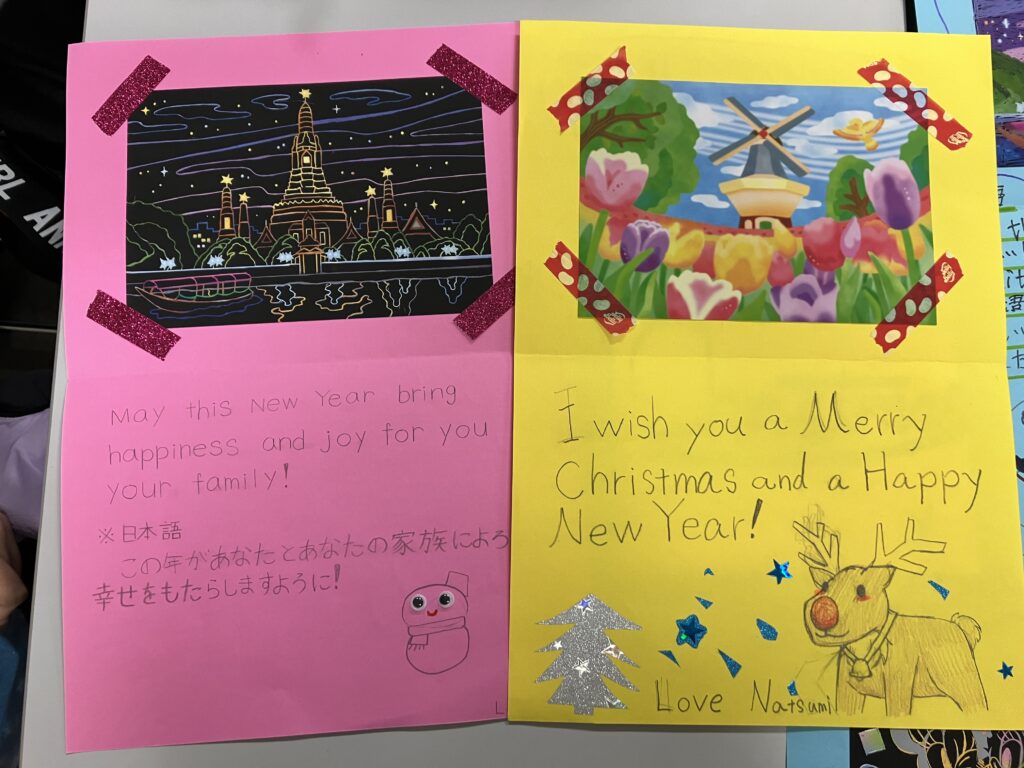 May this New Year bring
happiness and joy for you
your family!
※日本語
この年があなたとあなたの家族によろ
幸せをもたらしますように!
L
I wish you a Merry
Christmas and a Happy
New Year!
Love Natsumi